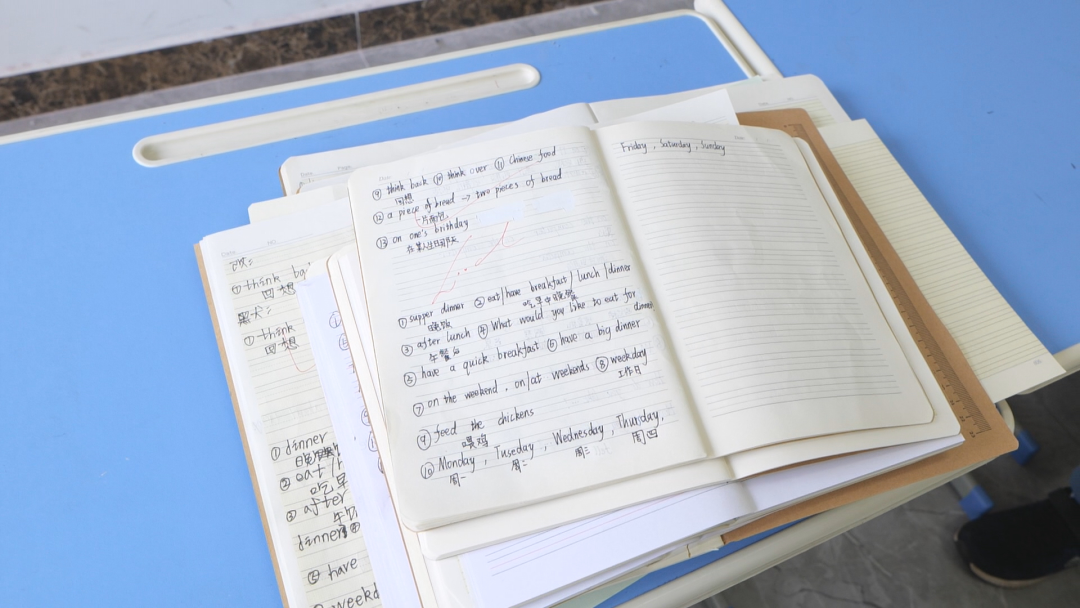 ⑨ think back ⑩ think over ⑪ Chinese food
回想
⑫ a piece of bread → two pieces of bread
一片面包
⑬ on one's brithday
在某人生日那天
① supper dinner ② eat/have breakfast/lunch/dinner
晚饭 吃早中晚餐
③ after lunch ④ What would you like to eat for dinner
午餐后
⑤ have a quick breakfast ⑥ have a big dinner
⑦ on the weekend . on/at weekends ⑧ weekday
工作日
⑨ feed the chickens
喂鸡
⑩ Monday , Tuseday , Wednesday , Thursday ,
周一 周二 周三 周四
Friday , Saturday , Sunday
改:
① think
回想
① think
回想
① dinner
② eat /
吃早
③ after
午
dinner
⑤ have